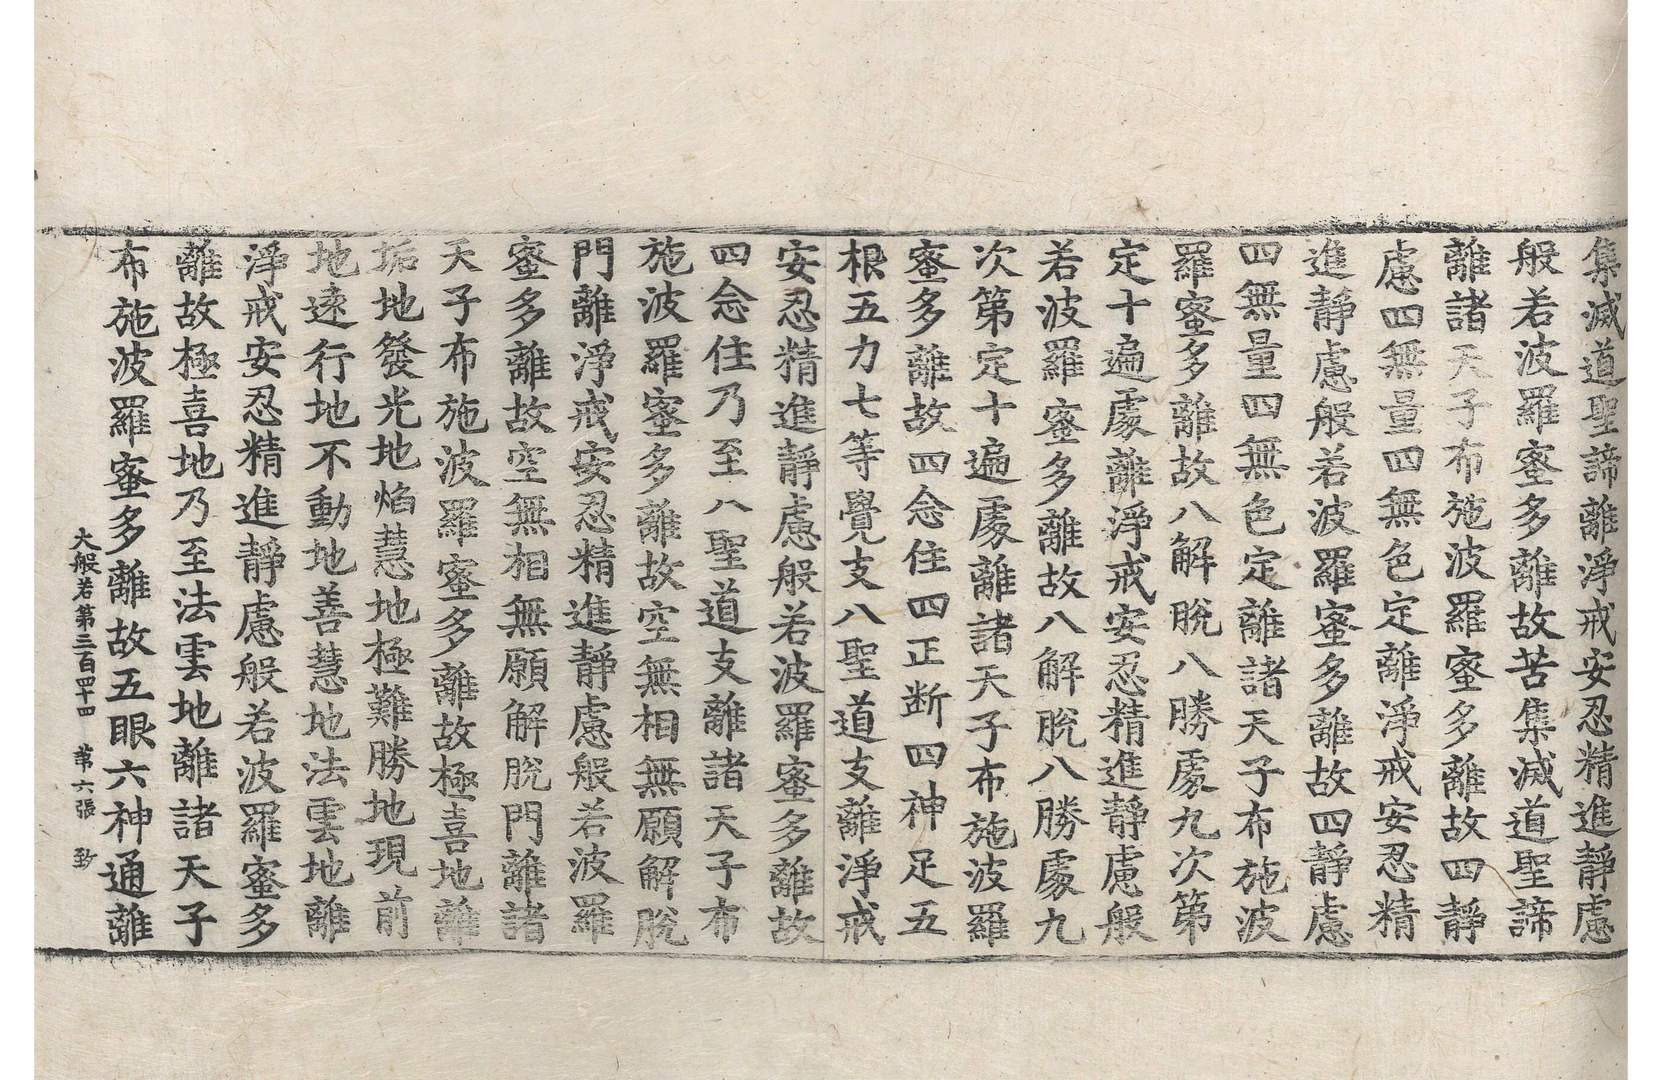 集滅道聖諦離淨戒安忍精進靜慮
般若波羅蜜多離故苦集滅道聖諦
離諸天子布施波羅蜜多離故四靜
慮四無量四無色定離淨戒安忍精
進靜慮般若波羅蜜多離故四靜慮
四無量四無色定離諸天子布施波
羅蜜多離故八解脫八勝處九次第
定十遍處離淨戒安忍精進靜慮般
若波羅蜜多離故八解脫八勝處九
次第定十遍處離諸天子布施波羅
蜜多離故四念住四正断四神足五
根五力七等覺支八聖道支離淨戒
安忍精進靜慮般若波羅蜜多離故
四念住乃至八聖道支離諸天子布
施波羅蜜多離故空無相無願解脫
門離淨戒安忍精進靜慮般若波羅
蜜多離故空無相無願解脫門離諸
天子布施波羅蜜多離故極喜地離
垢地發光地焰慧地極難勝地現前
地遠行地不動地善慧地法雲地離
淨戒安忍精進靜慮般若波羅蜜多
離故極喜地乃至法雲地離諸天子
布施波羅蜜多離故五眼六神通離
大般若第三百四十四 苐六張 致